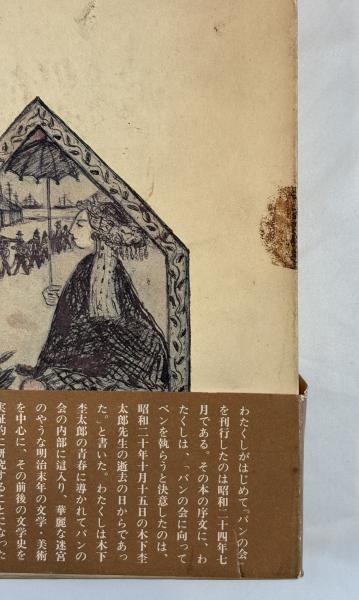 わたくしがはじめて『パンの会』
を刊行したのは昭和二十四年七
月である。その本の序文に、わ
たくしは、「パンの会に向って
ペンを執らうと決意したのは、
昭和二十年十月十五日の木下杢
太郎先生の逝去の日からであっ
た。」と書いた。わたくしは木下
杢太郎の青春に導かれてパンの
会の内部に這入り、華麗な迷宮
のやうな明治末年の文学・美術
を中心に、その前後の文学史を
実証的に研究することになった